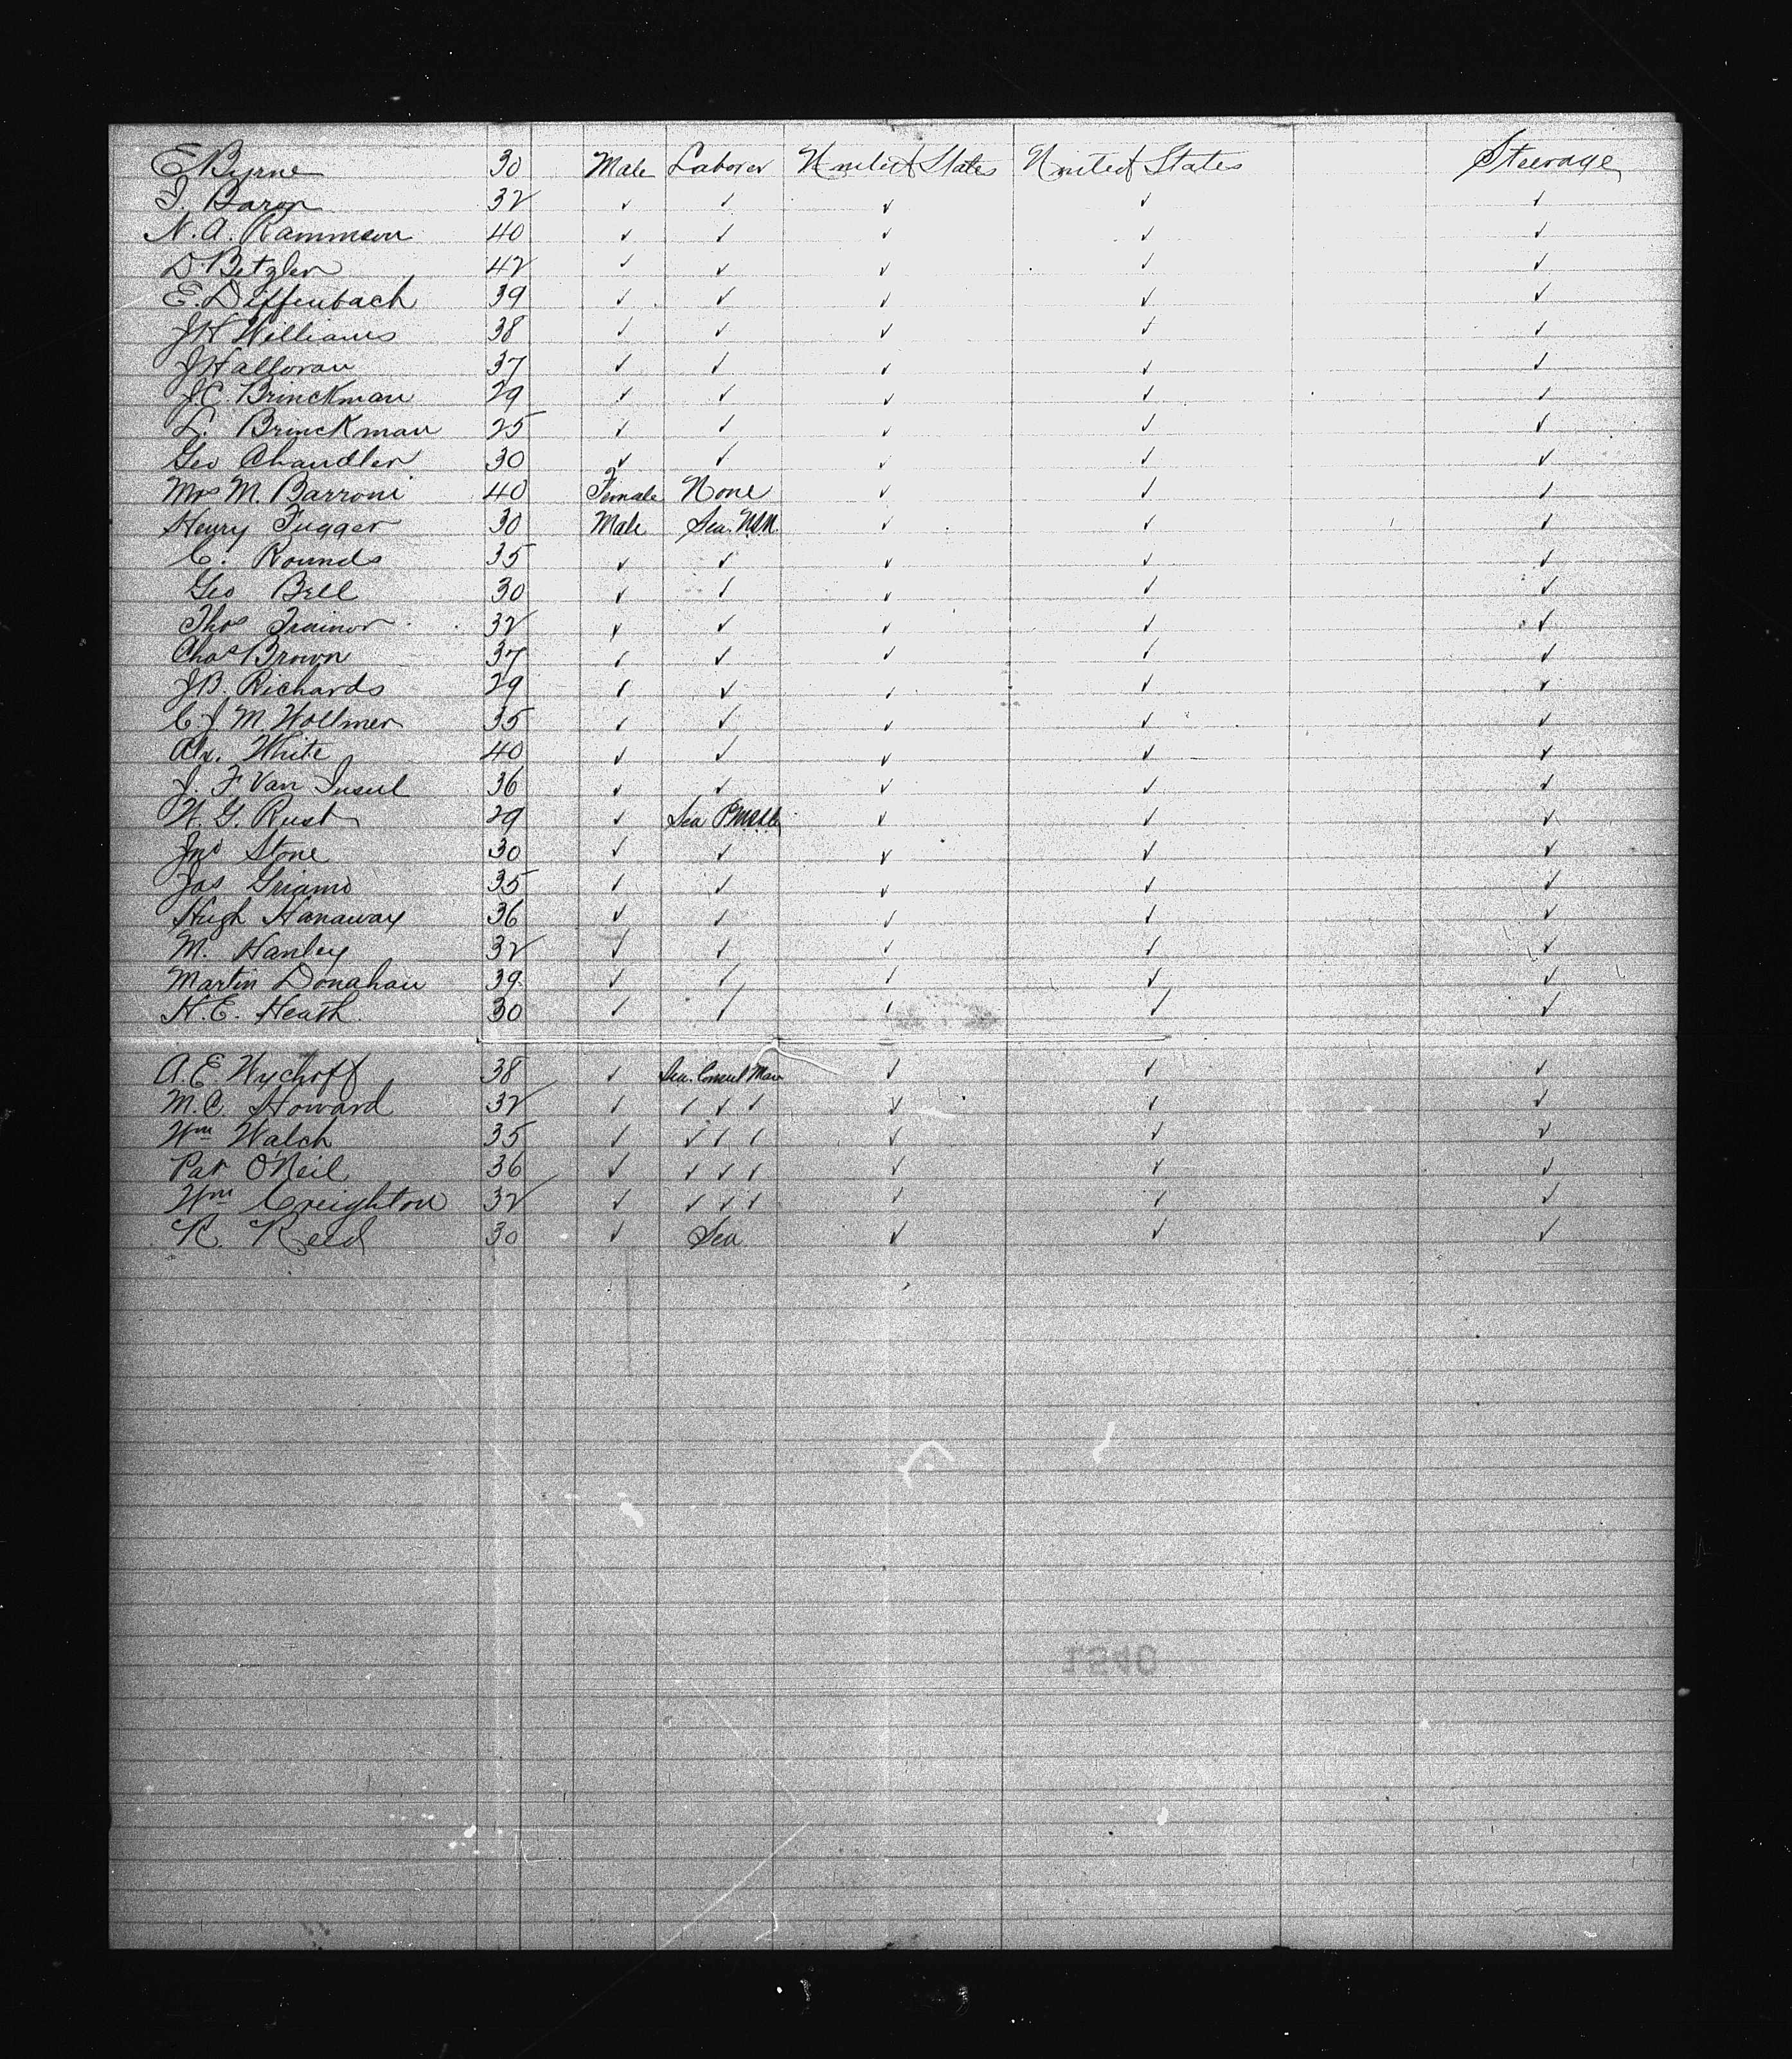 E Byrne 30 Male Laborer United States United States Steerage
J. Baron 32 ✓ ✓ ✓ ✓ ✓
N. A. Rammson 40 ✓ ✓ ✓ ✓ ✓
D Betzler 42 ✓ ✓ ✓ ✓ ✓
E. Deffenbach 39 ✓ ✓ ✓ ✓ ✓
J H Williams 38 ✓ ✓ ✓ ✓ ✓
J Halloran 37 ✓ ✓ ✓ ✓ ✓
J. C. Brinckman 29 ✓ ✓ ✓ ✓ ✓
L. Brinckman 25 ✓ ✓ ✓ ✓ ✓
Geo Chandler 30 ✓ ✓ ✓ ✓ ✓
Mrs M. Barroni 40 Female None ✓ ✓ ✓
Henry Fugger 30 Male Sea. ✓ ✓ ✓
C. Rounds 35 ✓ ✓ ✓ ✓ ✓
Geo Bell 30 ✓ ✓ ✓ ✓ ✓
Thos Trainor 32 ✓ ✓ ✓ ✓ ✓
Chas Brown 37 ✓ ✓ ✓ ✓ ✓
J B. Richards 29 ✓ ✓ ✓ ✓ ✓
C. J. M. Hollmer 35 ✓ ✓ ✓ ✓ ✓
Alx. White 40 ✓ ✓ ✓ ✓ ✓
J. F. Van 36 ✓ ✓ ✓ ✓ ✓
W. G. Rust 29 ✓ Sea ✓ ✓ ✓
Jno Stone 30 ✓ ✓ ✓ ✓ ✓
Jas 35 ✓ ✓ ✓ ✓ ✓
Hugh Hanaway 36 ✓ ✓ ✓ ✓ ✓
M. Hanley 32 ✓ ✓ ✓ ✓ ✓
Martin Donahau 39 ✓ ✓ ✓ ✓ ✓
H. E. Heath 30 ✓ ✓ ✓ ✓ ✓
A. E. Wychoff 38 ✓ Sea. Consul Man ✓ ✓ ✓
M. C. Howard 32 ✓ ✓ ✓ ✓ ✓ ✓ ✓
Wm Walch 35 ✓ ✓ ✓ ✓ ✓ ✓ ✓
Pat O'Neil 36 ✓ ✓ ✓ ✓ ✓ ✓ ✓
Wm Creighton 32 ✓ ✓ ✓ ✓ ✓ ✓ ✓
R. Reed 30 ✓ Sea ✓ ✓ ✓